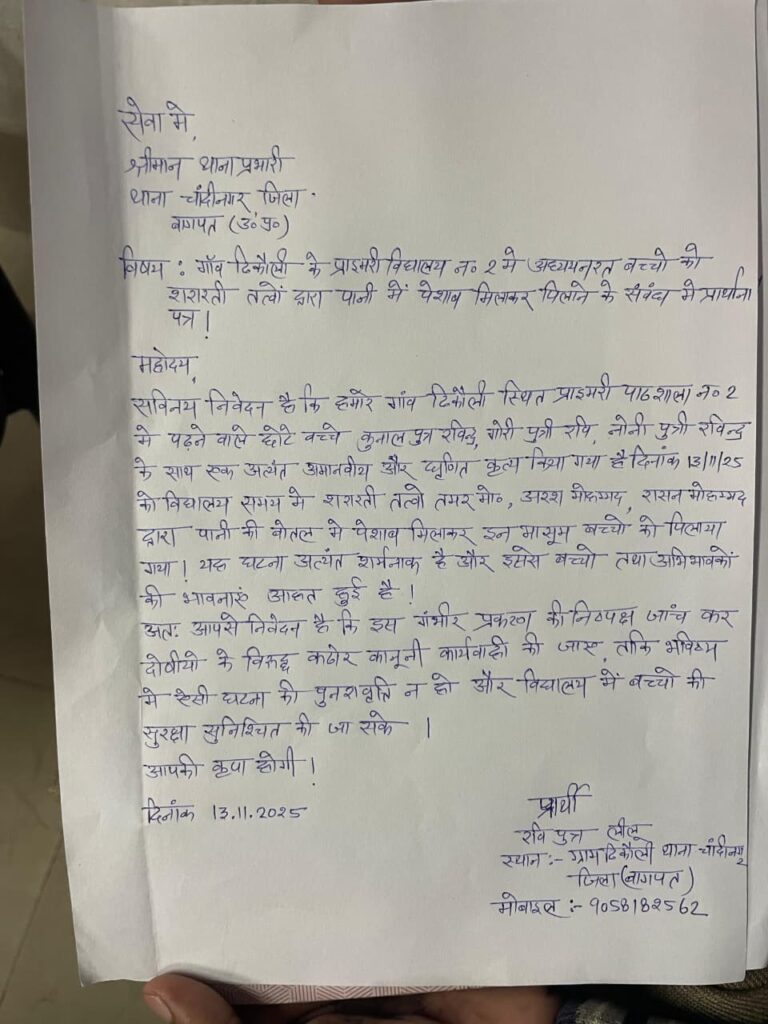 सेवा मे,
श्रीमान थाना प्रभारी
थाना चांदीनगर जिला
बागपत (उ॰प्र॰)
विषय : गाँव टिकौली के प्राइमरी विद्यालय न॰ 2 मे अध्ययनरत बच्चो को
शरारती तत्वों द्वारा पानी में पेशाब मिलाकर पिलाने के संबंध मे प्रार्थना
पत्र ।
महोदय,
सविनय निवेदन है कि हमारे गांव टिकौली स्थित प्राइमरी पाठशाला न॰ 2
मे पढ़ने वाले छोटे बच्चे कुनाल पुत्र रविन्द्र, गोरी पुत्री रवि, नोनी पुत्री रविन्द्र
के साथ एक अत्यंत अमानवीय और घृणित कृत्य किया गया है दिनांक 13/11/25
को विद्यालय समय मे शरारती तत्वो तमर मो॰, अरश मोहम्मद, रासन मोहम्मद
द्वारा पानी की बोतल मे पेशाब मिलाकर इन मासूम बच्चो को पिलाया
गया। यह घटना अत्यंत शर्मनाक है और इससे बच्चो तथा अभिभावकों
की भावनाएं आहत हुई है।
अतः आपसे निवेदन है कि इस गंभीर प्रकरण की निष्पक्ष जांच कर
दोषीयो के विरुद्ध कठोर कानूनी कार्यवाही की जाए, ताकि भविष्य
मे ऐसी घटना की पुनरावृत्ति न हो और विद्यालय में बच्चो की
सुरक्षा सुनिश्चित की जा सके ।
आपकी कृपा होगी।
दिनांक 13.11.2025
प्रार्थी
रवि पुत्र लीलू
स्थान :- ग्राम टिकौली थाना चांदीनगर
जिला (बागपत)
मोबाइल :- 9058182562